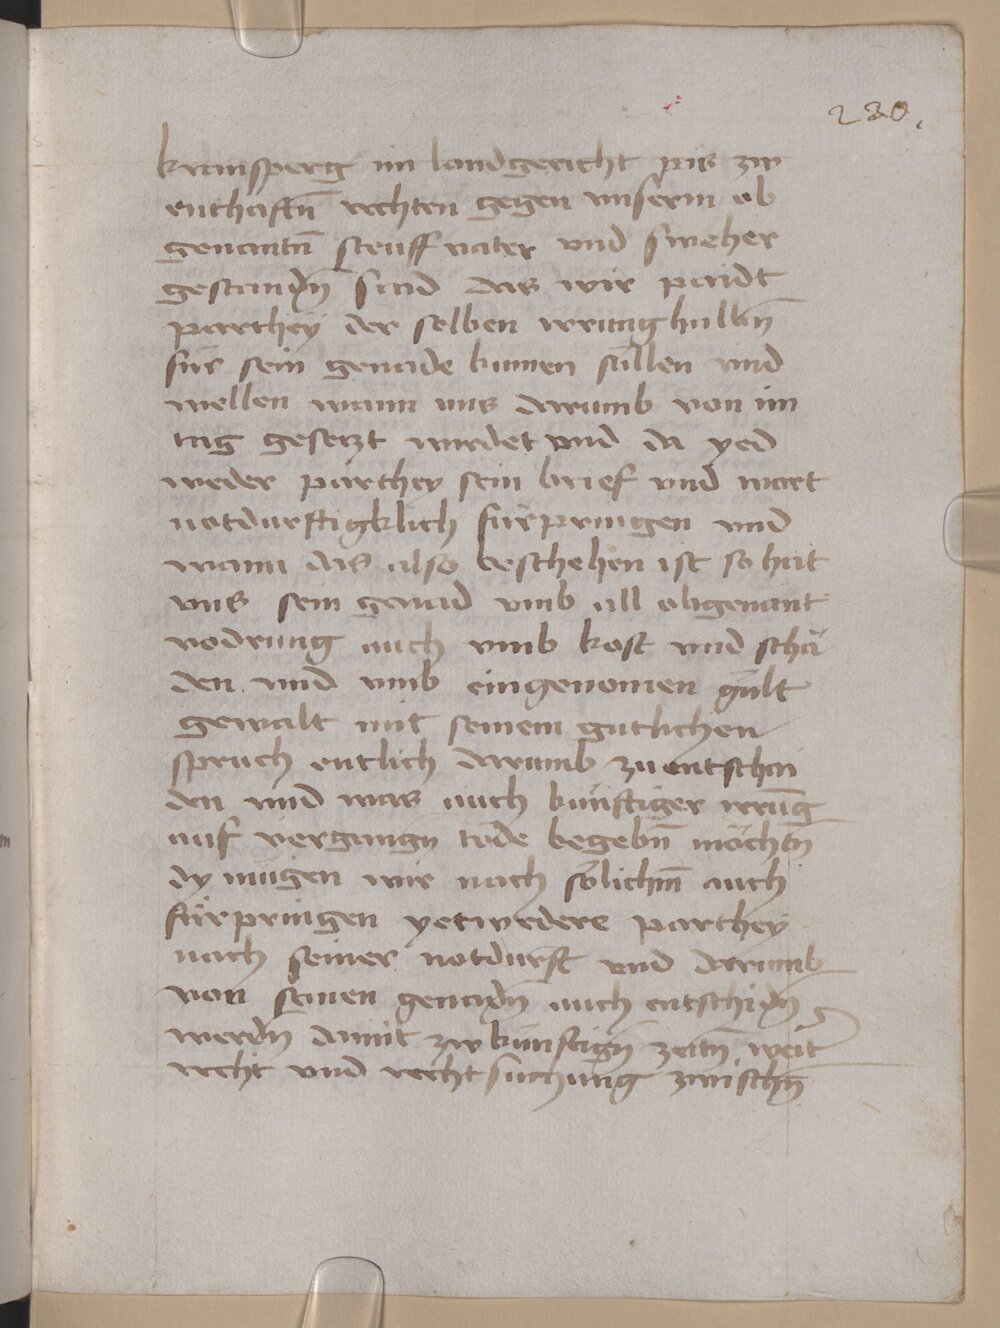 230.
kramsperg im landgericht pis zw
enthaftn̄ rechten gegen unserm ob
genantn̄ steuff vater vnd sweher
gestandn̄ sind das wir paidt
parthey der selben irrung hulbn̄
für sein genade kumen süllen vnd
wellen wann uns darumb von im
tag gesetzt wirdet vnd da yed
weder parthey sein brief vnd wort
notdurftigklich fürpringen vnd
wann das also beschehen ist so hat
vns sein genad vmb all obgenant
vodrung auch vmb kost vnd schä
den vnd vmb eingenomen gült
gewalt mit seinem gutlichen
spruch entlich darumb zu entschai
den vnd was auch künftiger irrūg
auf vergangn̄ tade begebn̄ möchtn̄
dy mügen wir nach sölichm̄ auch
fürpringen yetwedere parthey
nach seiner notdurft vnd darumb
von seinen genadn̄ auch entschidn̄
werdn̄ damit zw künftign̄ zeitn̄ weit̄
recht vnd recht suchung zwischn̄